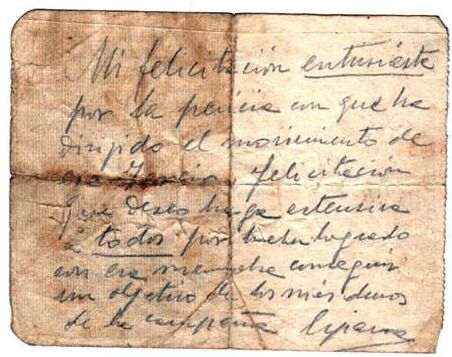 Mi felicitación entusiasta
por la pericia con que ha
dirigido el movimiento de
esa felicitación
que deseo haga extensiva
a todos por haber logrado
con esa maniobra conseguir
un objetivo de los más duros
de la campaña